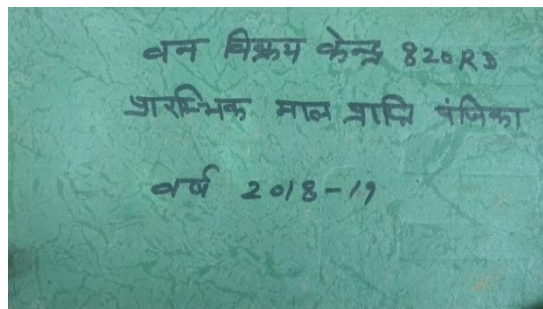 वन विक्रय केन्द्र 820RD
प्रारम्भिक माल प्राप्ति पंजिका
वर्ष 2018-19